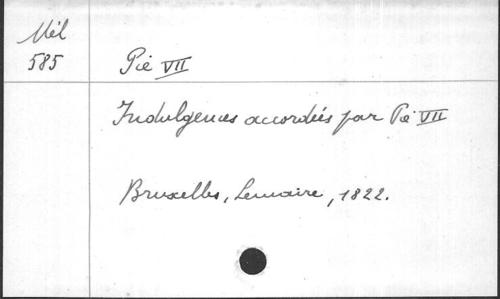 Mél
585
Pie VII
Indulgences accordées par Pie VII
Bruxelles, Lemaire, 1822.